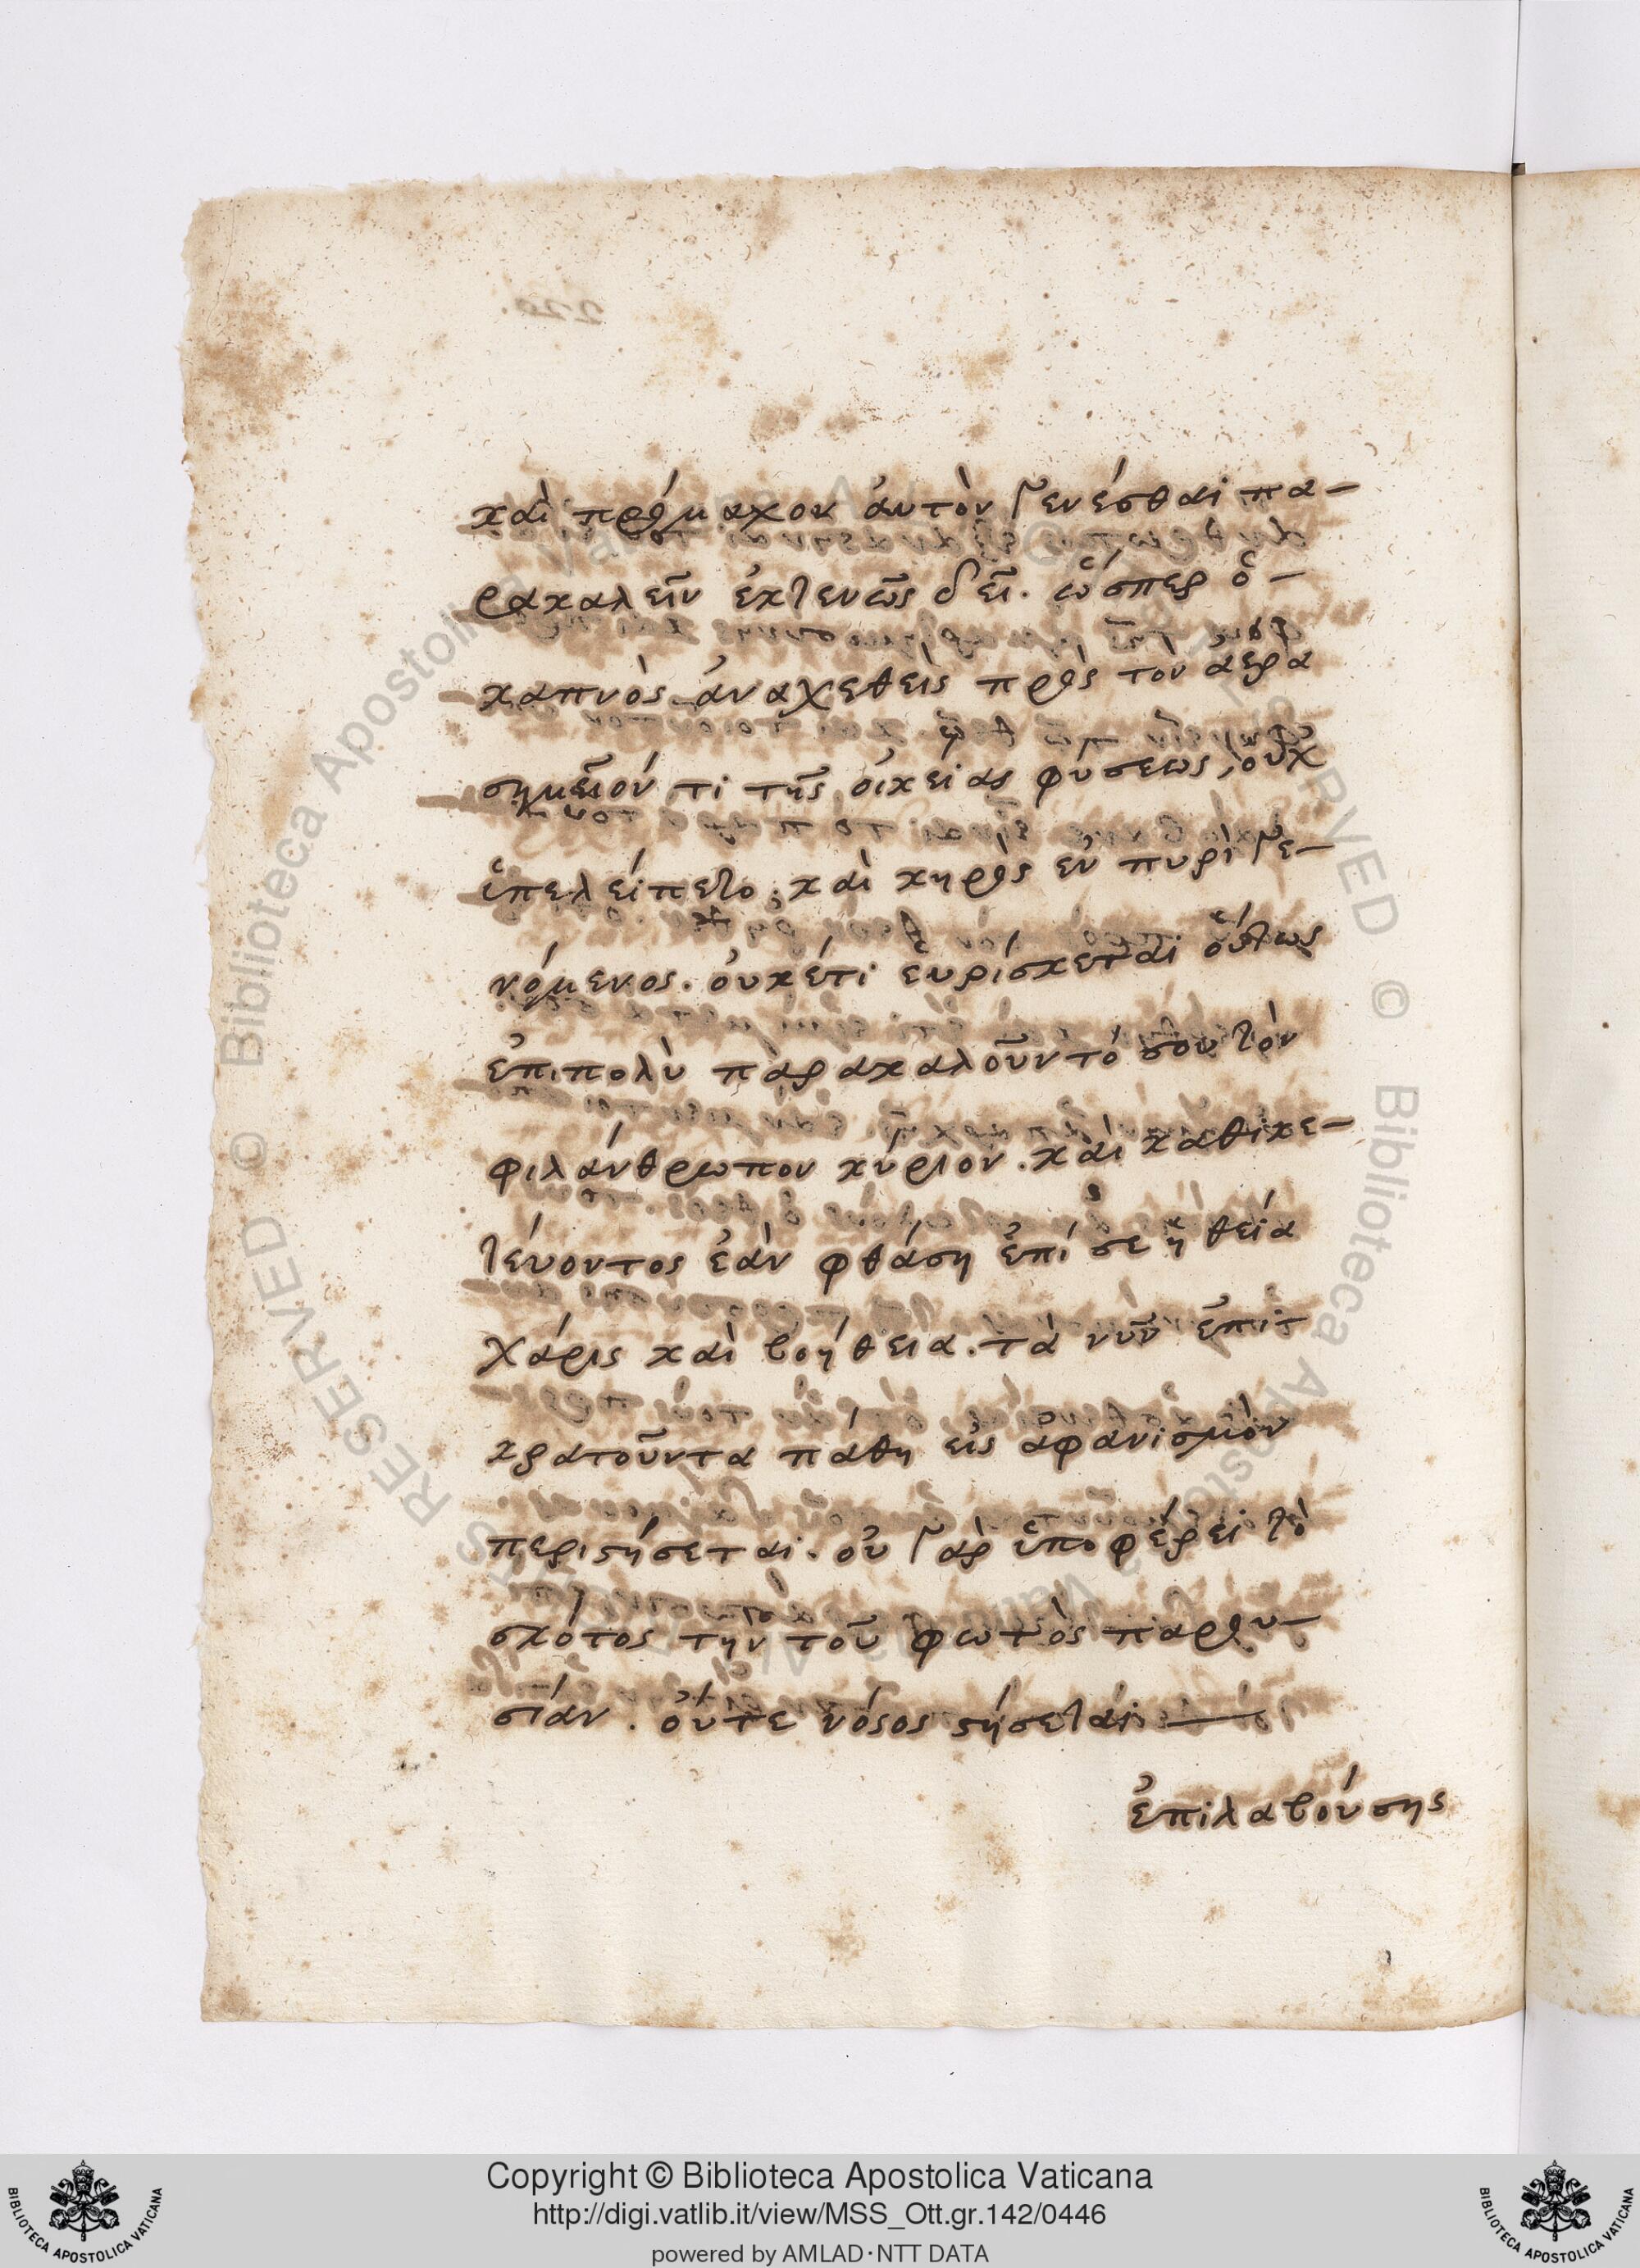 καὶ πρόμαχον ἀυτὸν γενέσθαι πα-
ρακαλεῖν ἐκτενῶς δεῖ. ὥσπερ ὁ-
καπνὸς ἀναχεθεὶς πρὸς τὸν ἀέρα
σημεῖόν τι τῆς ὀικείας φύσεως, οὐχ
ὑπελείπετο. καὶ κηρὸς ἐν πυρὶ γε-
νόμενος. ὀυκέτι ἑυρίσκεται ὅυτως
ἐπιπολὺ παρακαλοῦντό σου τὸν
φιλάνθρωπον κύριον. καὶ καθικε-
τέυοντος ἐὰν φθάση ἐπί σε ἡ θεία
χάρις καὶ βοήθεια. τὰ νῦν ἐπὶτ
κρατοῦντα πάθη εἰς ἀφανισμὸν
περιστήσεται. ὀυ γὰρ ὑποφέρει τὸ
σκότος τὴν τοῦ φωτὸς παρου-
σίαν. ὄυτε νόσος στήσεται
ἐπιλαβούσης
Copyright © Biblioteca Apostolica Vaticana
http://digi.vatlib.it/view/MSS_Ott.gr.142/0446
powered by AMLAD·NTT DATA
BIBLIOTECA APOSTOLICA VATICANA
BIBLIOTECA APOSTOLICA VATICANA